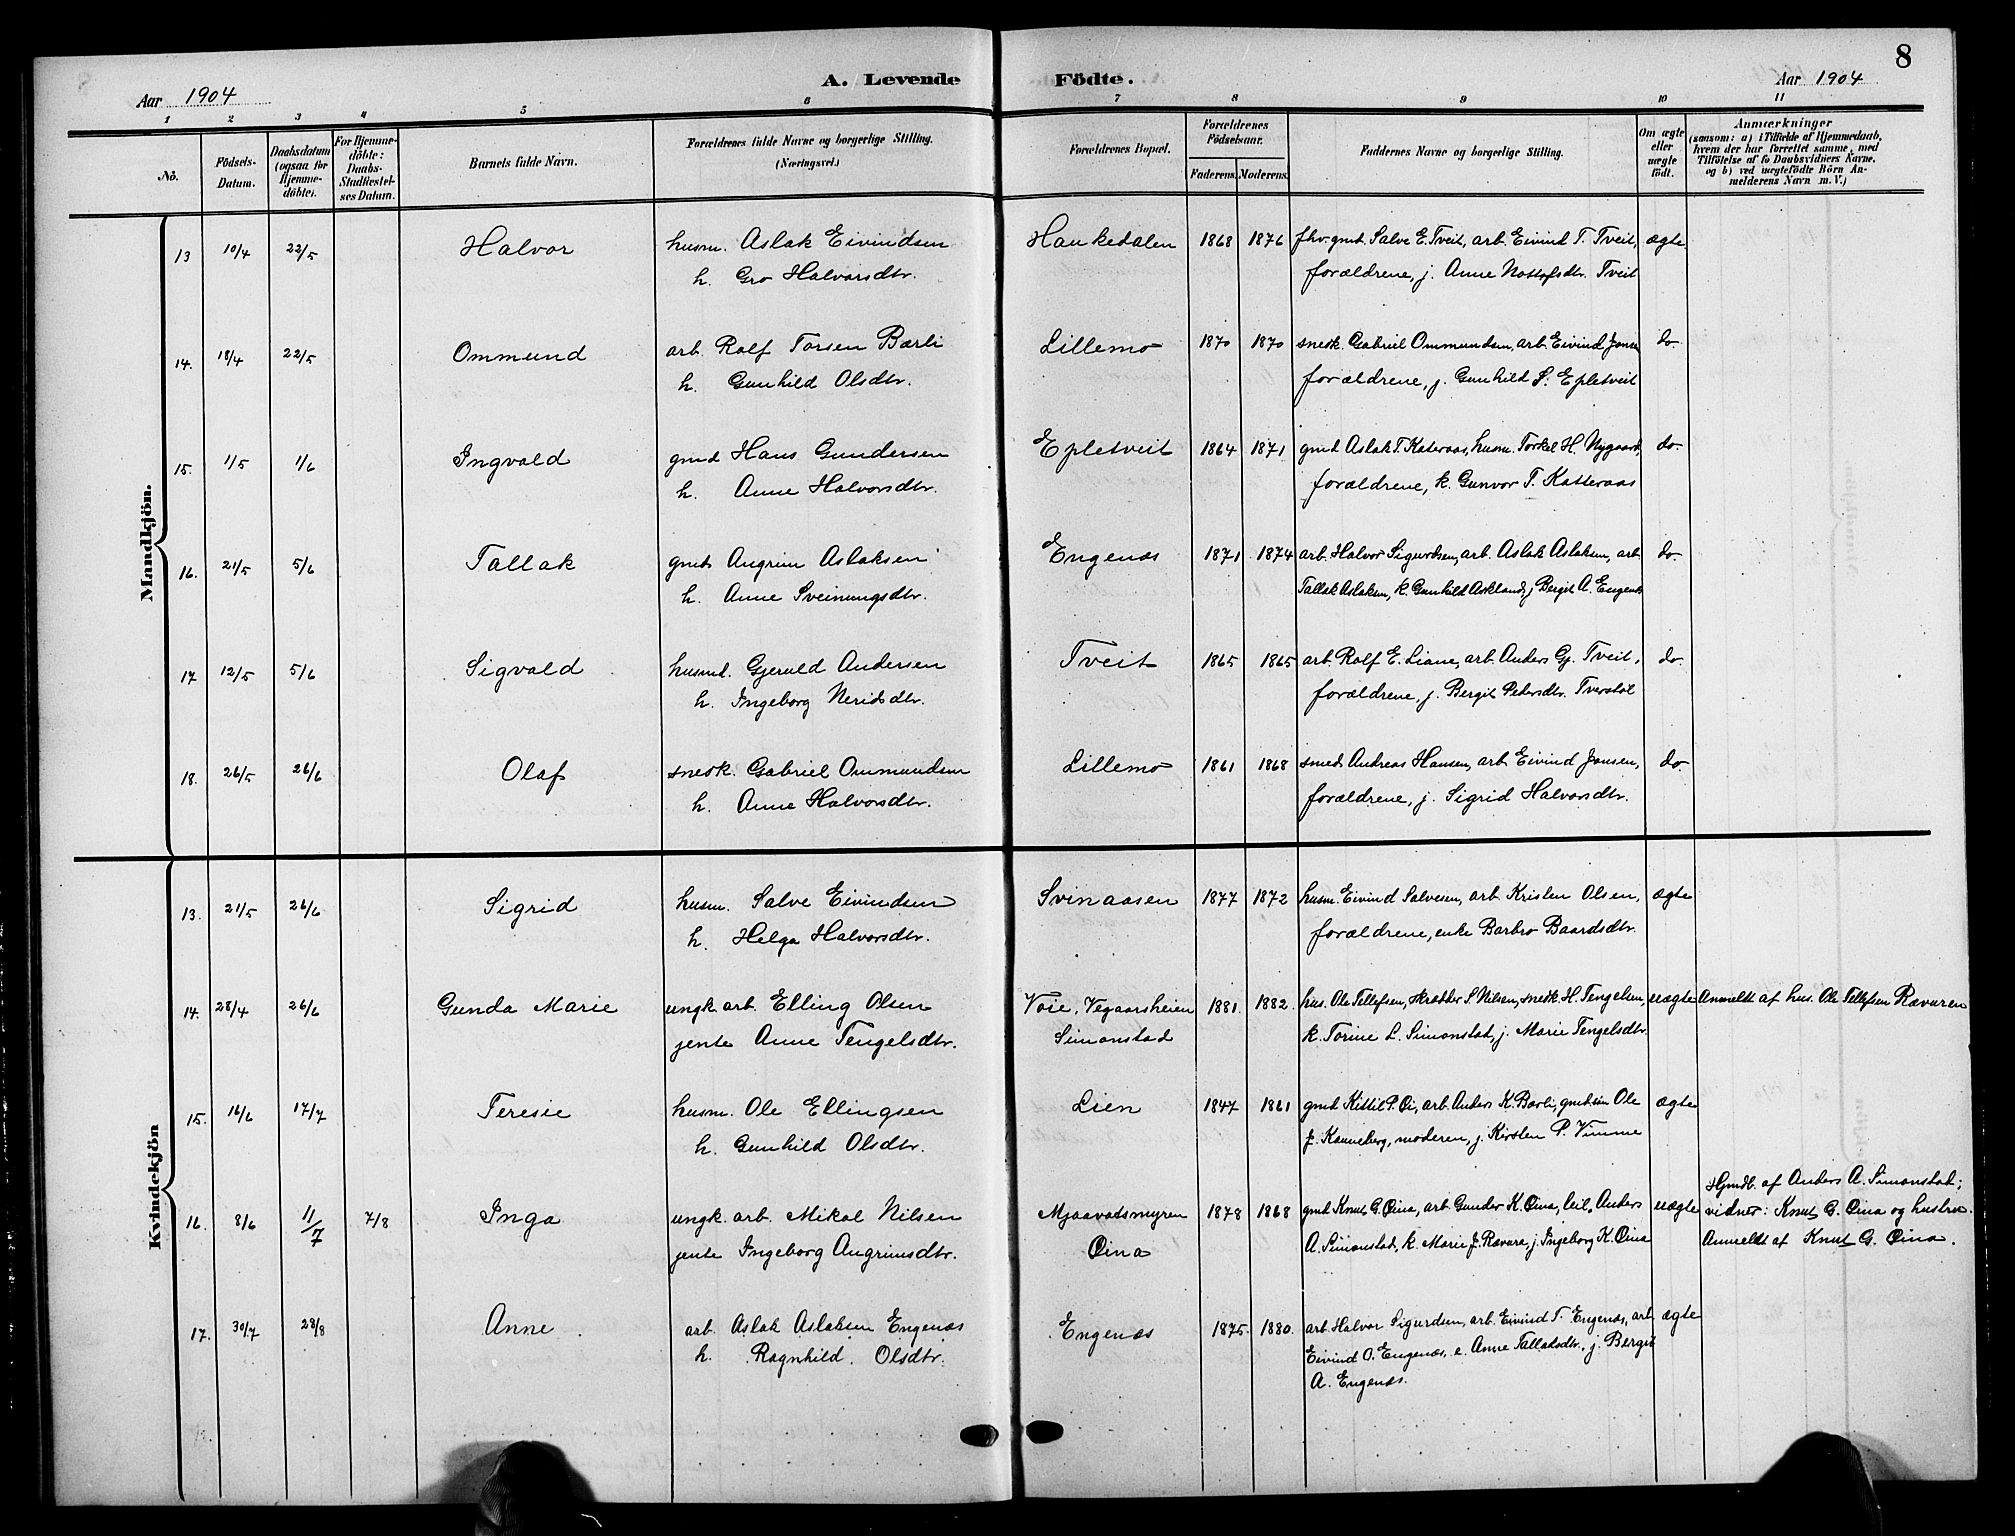 8
Aar 1904 A. Levende Födte. Aar 1904
1 2 3 4 5 6 7 8 9 10 11
No.
Födsels-
Datum.
Daabsdatum
(ogsaa for
Hjemme-
döbte).
For Hjemme-
döbte:
Daabs-
Stadfæstel-
ses Datum.
Barnets fulde Navn.
Forældrenes fulde Navne og borgerlige Stilling.
(Næringsvei.)
Forældrenes Bopæl.
Forældrenes
Födselsaar.
Faderens. Moderens.
Faddernes Navne og borgerlige Stilling.
Om ægte
eller
uægte
födt.
Anmærkninger
(saasom: a) i Tilfælde af Hjemmedaab,
hvem der har forrettet samme, med
Tilföielse af to Daabsvidners Navne,
og b) ved uægtefödte Börn An-
melderens Navn m. V.)
Mandkjön.
13 10/4 22/5 Halvor husm. Aslak Eivindsen Haukedalen 1868 1876 fhv. gmd. Salve E. Tveit, arb. Eivind T. Tveit, ægte
h. Gro Halvorsdtr. forældrene, j. Anne Nottofsdtr. Tveit
14. 18/4 22/5 Ommund arb. Rolf Torsen Bærli Lillemo 1870 1870 snedk. Gabriel Ommundsen, arb. Eivind Jonsen do.
h. Gunhild Olsdtr. forældrene, j. Gunhild S. Epletveit
15. 1/5 1/6 Ingvald gmd Hans Gundersen Epletveit 1864 1871 gmd Aslak T. Kateraas, husm. Torkel H. Nygaard, do.
h. Anne Halvorsdtr. forældrene, k. Gunvor T. Katteraas
16. 21/5 5/6 Tallak gmd. Angrim Aslaksen Engenæs 1871 1874 arb. Halvor Sigurdsen, arb. Aslak Aslaksen, arb. do.
h. Anne Sveinungsdtr. Tallak Aslaksen, k. Gunhild Askland, j. Bergit A. Engenæs
17 12/5 5/6 Sigvald husmd. Gjeruld Andersen Tveit 1865 1865 arb. Rolf E. Liane, arb. Anders Gj. Tveit, do.
h. Ingeborg Neridsdtr. forældrene, j. Bergit Pedersdtr. Tverstøl
18. 26/5 26/6 Olaf snedk. Gabriel Ommundsen Lillemo 1861 1868 smed. Andreas Hansen, arb. Eivind Jonsen, do.
h. Anne Halvorsdtr. forældrene, j. Sigrid Halvorsdtr.
Kvindekjön
13. 21/5 26/6 Sigrid husm. Salve Eivindsen Svinaasen 1877 1872 husm. Eivind Salvesen, arb. Kristen Olsen, ægte
h. Helga Halvorsdtr. forældrene, enke Barbro Baardsdtr.
14. 28/4 26/6 Gunda Marie ungk. arb. Elling Olsen Voie, Vegaarsheien 1881. 1882. hus. Ole Tellefsen, skrædder S. Nilsen, snedk. H. Tengelsen, uægte Anmeldt af hus. Ole Tellefsen Rævuren
jente Anne Tengelsdtr. Simonstad k. Torine L. Simonstad, j. Marie Tengelsdtr.
15. 16/6 17/7 Teresie husm. Ole Ellingsen Lien 1847 1861 gmd Kittil P. Øi, arb. Anders K. Bærli, gmdsøn Ole ægte
h. Gunhild Olsdtr. J. Kanneberg, moderen, j. Kirsten P. Vimme
16. 8/6 11/7 7/8 Inga ungk. arb. Mikal Nilsen Mjaavatsmyren 1878 1868 gmd Knut G. Øina, arb. Gunder K. Øina, leil. Anders uægte Hjmdb. af Anders A. Simonstad;
vidner: Knut G. Øina og hustru.
jente Ingeborg Angrimsdtr. Øina A. Simonstad, k. Marie J. Rævura, j. Ingeborg K. Øina Anmeldt af Knut G. Øina.
17. 30/7 28/8 Anne arb. Aslak Aslaksen Engenæs Engenæs 1875. 1880. arb. Halvor Sigurdsen, arb. Eivind T. Engenæs, arb. ægte
h. Ragnhild Olsdtr. Eivind O. Engenæs, e. Anne Tallaksdtr., j. Bergit
A. Engenæs.